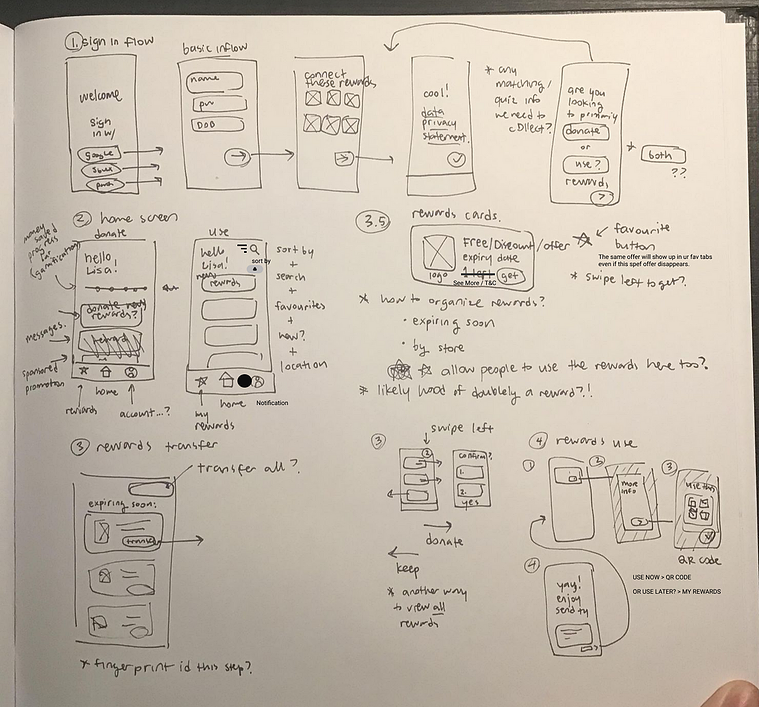 1. sign in flow
welcome
sign
in w/
google
basic inflow
name
pw
DOB
connect
these rewards
cool!
data
privacy
statement.
* any
matching/
quiz info
we need to
collect?
are you
looking
to primarily
donate
or
use?
rewards
* both
??
2 home screen
donate
money
saved
progress
bar
gamification
hello
Lisa!
donate
rewards?
messages.
reward
sponsored
promotion
home
rewards
account...?
use
hello
Lisa!
sort by
new
rewards
sort by
+
search
+
favourites
+
new?
+
location
home
Notification
my
rewards
3.5 rewards cards.
Free/Discount/offer
expiry date
1 left
get
logo
See More / T&C
favourite
button
The same offer will show up in ur fav tabs
even if this spef offer disappears.
* swipe left to get?
* how to organize rewards?
• expiring soon
• by store
allow people to use the rewards here too?
* likely hood of doubely a reward?!
3 rewards transfer
transfer all?
expiring soon:
* fingerprint id this step?
3
swipe left
2
confirm?
1.
2.
yes
donate
keep
* another way
to view all
rewards
4 rewards use
1
2
more
info
3
use this
QR code
4
yay!
enjoy
send ty
USE NOW > QR CODE
OR USE LATER? > MY REWARDS